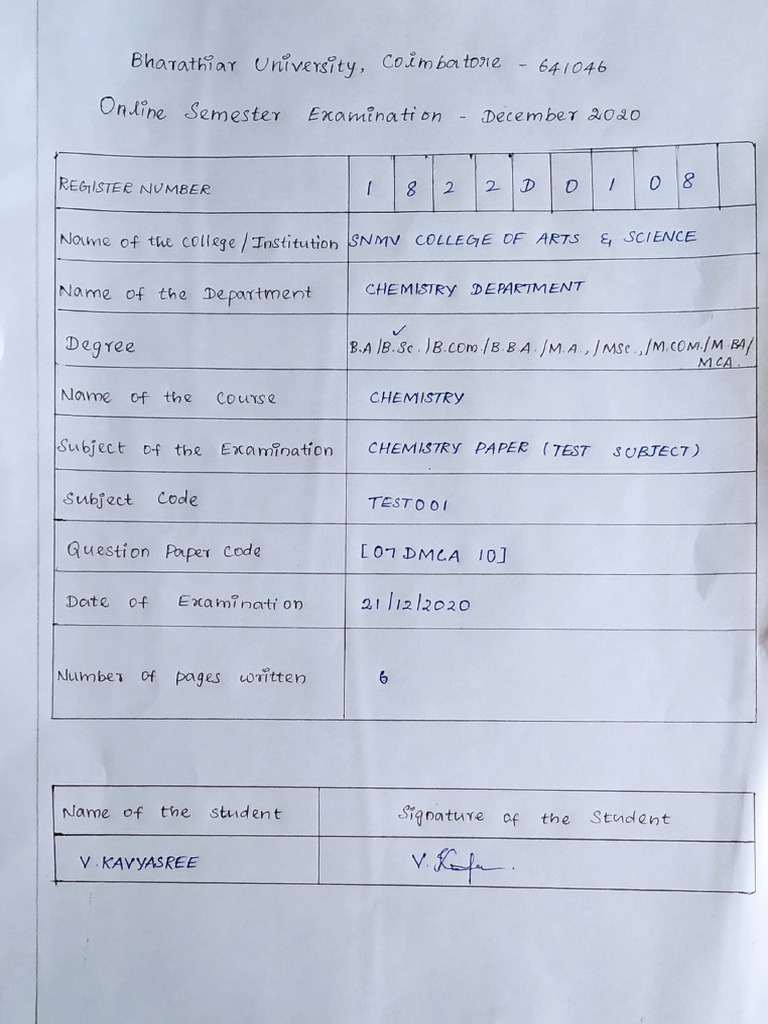 Bharathiar University, Coimbatore - 641046
Online Semester Examination - December 2020
REGISTER NUMBER 1 8 2 2 D 0 1 0 8
Name of the college/Institution SNMV COLLEGE OF ARTS & SCIENCE
Name of the Department CHEMISTRY DEPARTMENT
Degree B.A/B.Sc./B.COM/B.B.A./M.A.,/MSc.,/M.COM./M.BA/
MCA.
Name of the Course CHEMISTRY
Subject of the Examination CHEMISTRY PAPER (TEST SUBJECT)
Subject Code TEST001
Question Paper Code [07 DMCA 10]
Date of Examination 21/12/2020
Number of pages written 6
Name of the student Signature of the Student
V. KAVYASREE V.